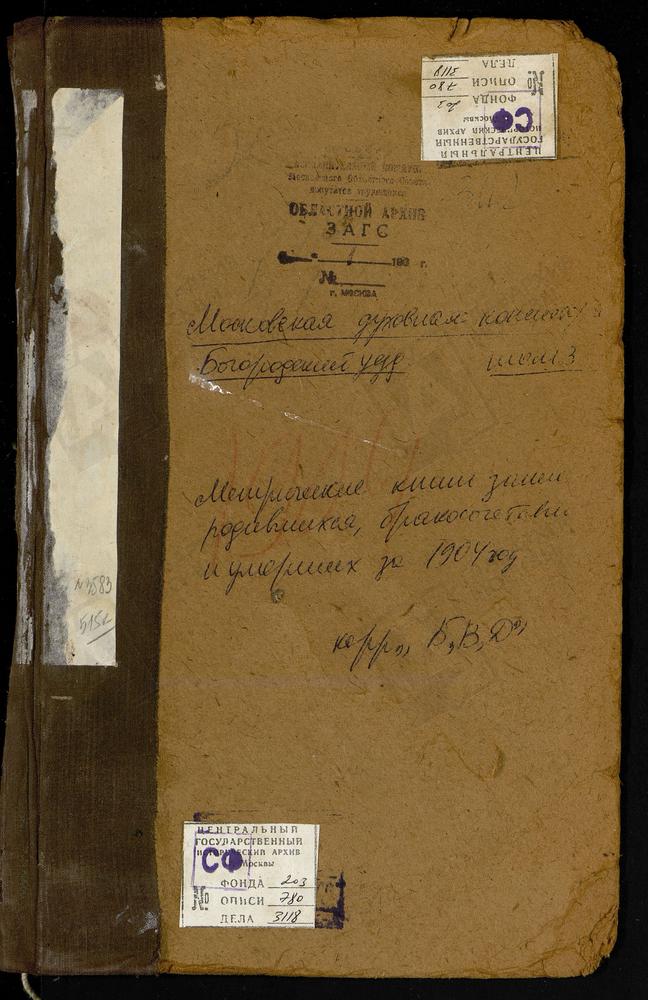 ЦЕНТРАЛЬНЫЙ
ГОСУДАРСТВЕННЫЙ
ИСТОРИЧЕСКИЙ АРХИВ
Москвы
СФ
ФОНДА 203
№ ОПИСИ 780
ДЕЛА 3118
депутатов трудящихся
ОБЛАСТНОЙ АРХИВ
ЗАГС
193 г.
№
г. МОСКВА
Московская духовная
Богородский уезд том 3
Метрические книги
родившихся,
и умерших за 1904 год
Б, В, Д
№3583
515
ЦЕНТРАЛЬНЫЙ
ГОСУДАРСТВЕННЫЙ
ИСТОРИЧЕСКИЙ АРХИВ
Москвы
СФ
ФОНДА 203
№ ОПИСИ 780
ДЕЛА 3118